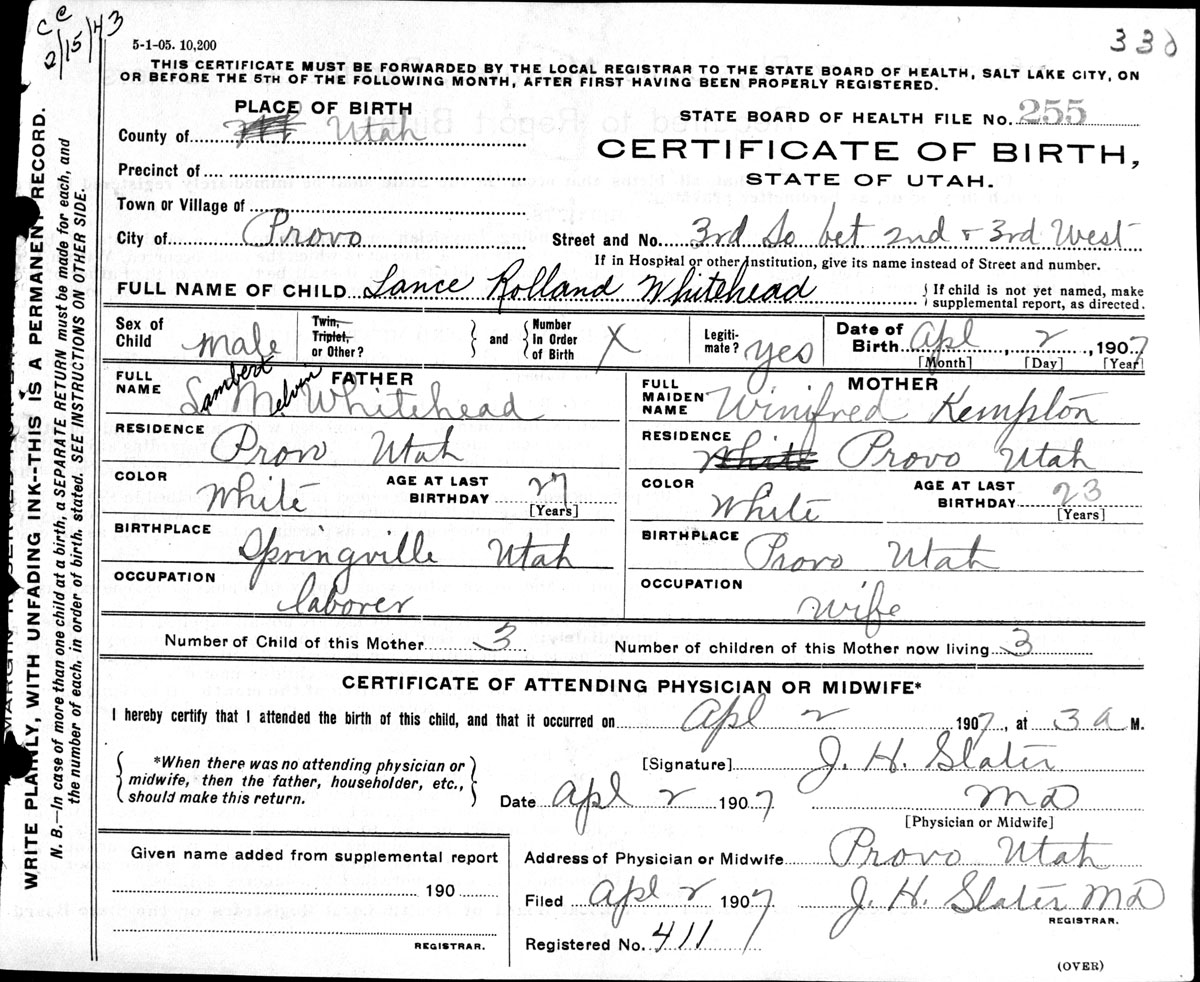 cc
2/15/43
5-1-05. 10,200
THIS CERTIFICATE MUST BE FORWARDED BY THE LOCAL REGISTRAR TO THE STATE BOARD OF HEALTH, SALT LAKE CITY, ON
OR BEFORE THE 5TH OF THE FOLLOWING MONTH, AFTER FIRST HAVING BEEN PROPERLY REGISTERED.
PLACE OF BIRTH
STATE BOARD OF HEALTH FILE No. 255
County of Utah
CERTIFICATE OF BIRTH,
STATE OF UTAH.
Precinct of
Town or Village of
City of Provo Street and No. 3rd So bet 2nd + 3rd West
If in Hospital or other Institution, give its name instead of Street and number.
FULL NAME OF CHILD Lance Rolland Whitehead { If child is not yet named, make supplemental report, as directed.
Sex of Child male Twin, Triplet, or Other? } and { Number In Order of Birth X Legiti-mate? yes Date of Birth Apl 2, 1907
[Month] [Day] [Year]
FATHER
FULL NAME Lambert Melvin Whitehead
RESIDENCE Provo Utah
COLOR White AGE AT LAST BIRTHDAY 27
[Years]
BIRTHPLACE Springville Utah
OCCUPATION laborer
MOTHER
FULL MAIDEN NAME Winifred Kempton
RESIDENCE White Provo Utah
COLOR White AGE AT LAST BIRTHDAY 23
[Years]
BIRTHPLACE Provo Utah
OCCUPATION wife
Number of Child of this Mother 3 Number of children of this Mother now living 3
CERTIFICATE OF ATTENDING PHYSICIAN OR MIDWIFE*
I hereby certify that I attended the birth of this child, and that it occurred on Apl 2 1907, at 3 a M.
{ *When there was no attending physician or
midwife, then the father, householder, etc.,
should make this return. }
[Signature] J. H. Slater
Date Apl 2 1907 MD
[Physician or Midwife]
Given name added from supplemental report
190
REGISTRAR.
Address of Physician or Midwife Provo Utah
Filed Apl 2 1907 J. H. Slater MD
REGISTRAR.
Registered No. 411
(OVER)
WRITE PLAINLY, WITH UNFADING INK--THIS IS A PERMANENT RECORD.
N. B.—In case of more than one child at a birth, a SEPARATE RETURN must be made for each, and
the number of each, in order of birth, stated. SEE INSTRUCTIONS ON OTHER SIDE.